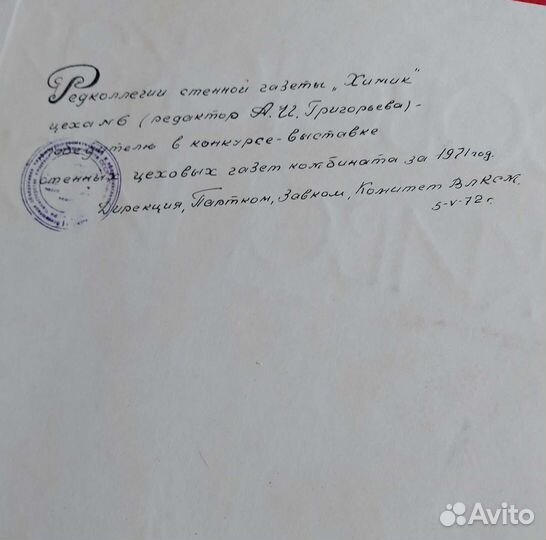 Редколлегии стенной газеты „Химик"
цеха №6 (редактор А.И. Григорьева) -
победителю в конкурсе-выставке
стенных цеховых газет комбината за 1971 год.
Дирекция, Партком, Завком, Комитет ВЛКСМ.
5-V-72 г.
Avito